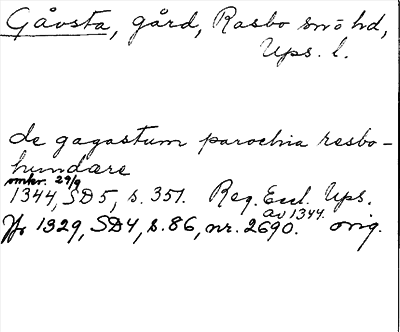 Gåvsta, gård, Rasbo sn o hd,
Ups. l.
de gagastum parochia resbo-
hundare
omkr. 29/9
1344, SD 5, s. 351. Reg. Eccl. Ups.
av 1344.
Jfr 1329, SD 4, s. 86, nr. 2690. orig.